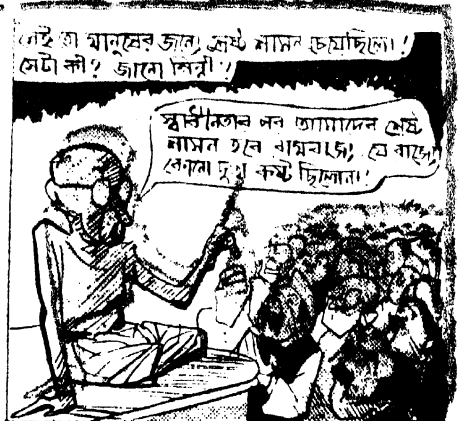 সেই তো মানুষের জন্যে শ্রেষ্ঠ শাসন চেয়েছিলো!
সেটা কী? জানো শিল্পী?
স্বাধীনতার পর আমাদের শ্রেষ্ঠ
শাসন হবে রামরাজ্য যে রাজ্যে
কোনো দুঃখ কষ্ট ছিলোনা!